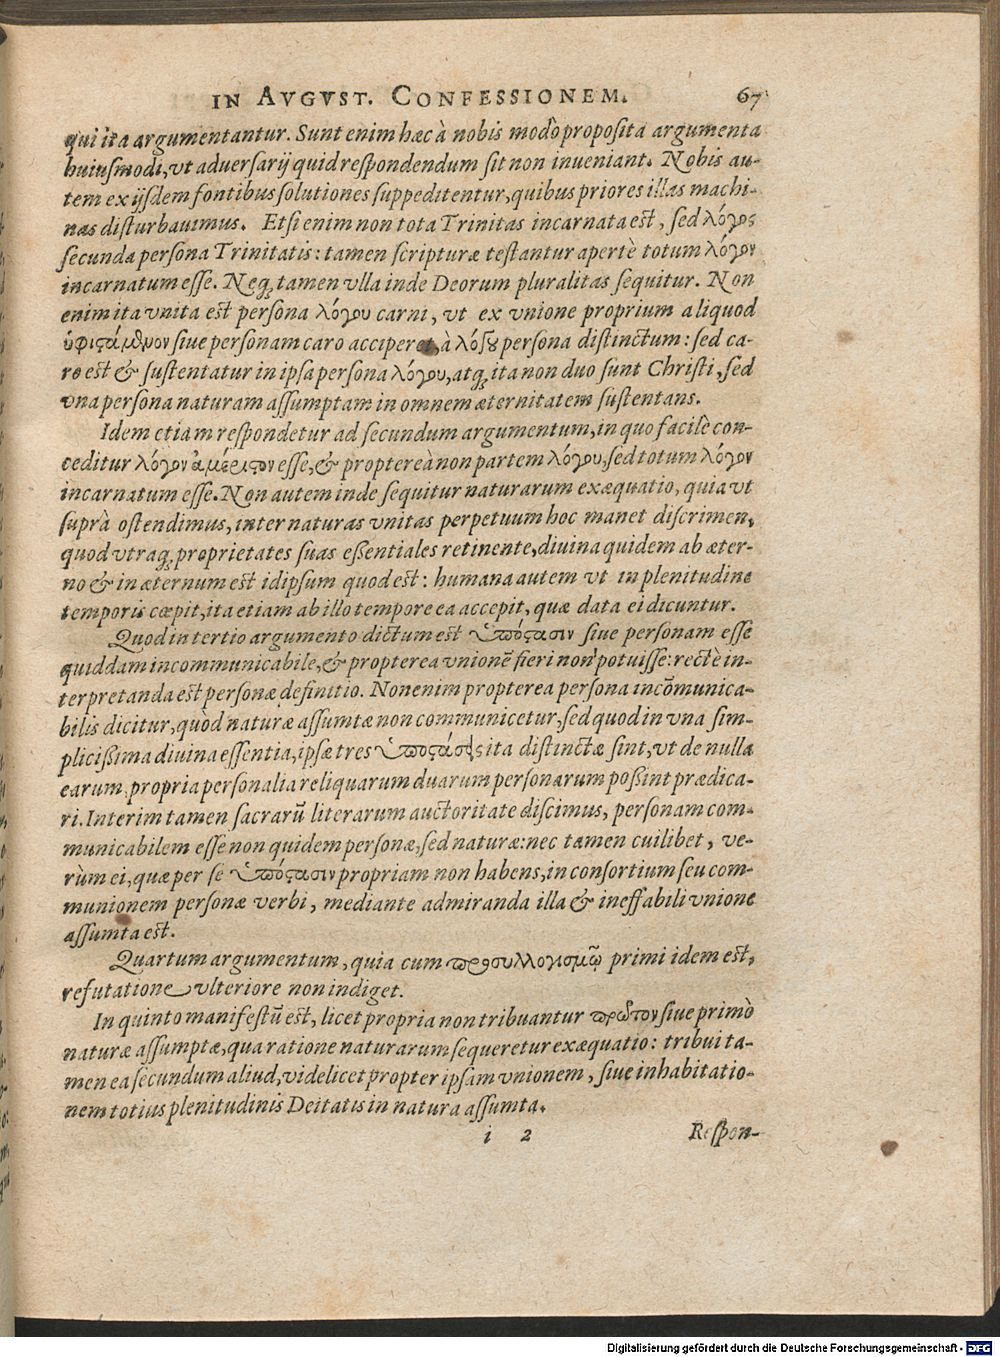 IN AVGVST. CONFESSIONEM. 67
qui ita argumentantur. Sunt enim hæc à nobis modò proposita argumenta
huiusmodi, vt aduersarij quid respondendum sit non inueniant. Nobis au-
tem ex ijsdem fontibus solutiones suppeditentur, quibus priores illas machi-
nas disturbauimus. Etsi enim non tota Trinitas incarnata est, sed λόγος
secunda persona Trinitatis: tamen scripturæ testantur apertè totum λόγον
incarnatum esse. Neq; tamen vlla inde Deorum pluralitas sequitur. Non
enim ita vnita est persona λόγου carni, vt ex vnione proprium aliquod
ὑφιϛάμενον siue personam caro acciperet, à λόγȣ persona distinctum: sed ca-
ro est & sustentatur in ipsa persona λόγου, atq; ita non duo sunt Christi, sed
vna persona naturam assumptam in omnem æternitatem sustentans.
Idem etiam respondetur ad secundum argumentum, in quo facilè con-
ceditur λόγον ἀμέριϛον esse, & proptereà non partem λόγου, sed totum λόγον
incarnatum esse. Non autem inde sequitur naturarum exæquatio, quia vt
suprà ostendimus, inter naturas vnitas perpetuum hoc manet discrimen,
quod vtraq; proprietates suas essentiales retinente, diuina quidem ab æter-
no & in æternum est idipsum quod est: humana autem vt in plenitudine
temporis cœpit, ita etiam ab illo tempore ea accepit, quæ data ei dicuntur.
Quod in tertio argumento dictum est ὑπόϛασιν siue personam esse
quiddam incommunicabile, & propterea vnionē fieri non potuisse: rectè in-
terpretanda est personæ definitio. Non enim propterea persona incōmunica-
bilis dicitur, quòd naturæ assumtæ non communicetur, sed quod in vna sim-
plicissima diuina essentia, ipsæ tres ὑποϛάσεις ita distinctæ sint, vt de nulla
earum propria personalia reliquarum duarum personarum possint prædica-
ri. Interim tamen sacrarū literarum auctoritate discimus, personam com-
municabilem esse non quidem personæ, sed naturæ: nec tamen cuilibet, ve-
rùm ei, quæ per se ὑπόϛασιν propriam non habens, in consortium seu com-
munionem personæ verbi, mediante admiranda illa & ineffabili vnione
assumta est.
Quartum argumentum, quia cum προσυλλογισμῷ primi idem est,
refutatione vlteriore non indiget.
In quinto manifestū est, licet propria non tribuantur πρῶτον siue primò
naturæ assumptæ, qua ratione naturarum sequeretur exæquatio: tribui ta-
men ea secundum aliud, videlicet propter ipsam vnionem, siue inhabitatio-
nem totius plenitudinis Deitatis in natura assumta.
i 2 Respon-
Digitalisierung gefördert durch die Deutsche Forschungsgemeinschaft - DFG